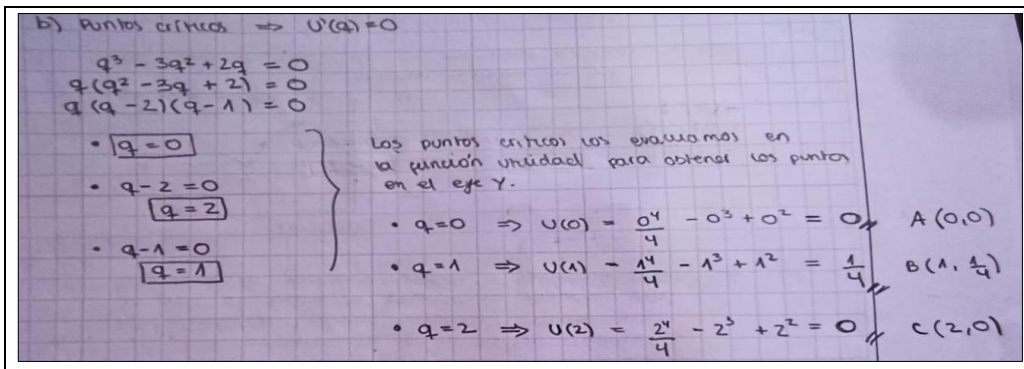 b) Puntos críticos ⇒ U'(q) = 0
q³ - 3q² + 2q = 0
q(q² - 3q + 2) = 0
q(q - 2)(q - 1) = 0
• q = 0
• q - 2 = 0
q = 2
• q - 1 = 0
q = 1
Los puntos críticos los evaluamos en
la función utilidad para obtener los puntos
en el eje Y.
• q = 0 ⇒ U(0) = 0⁴/4 - 0³ + 0² = 0 // A(0,0)
• q = 1 ⇒ U(1) = 1⁴/4 - 1³ + 1² = 1/4 // B(1, 1/4)
• q = 2 ⇒ U(2) = 2⁴/4 - 2³ + 2² = 0 // C(2,0)